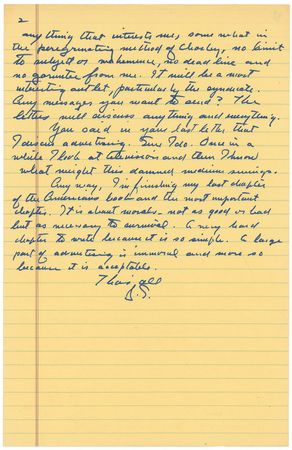 2
anything that interests me, some what in
the peregrinating method of Charley, no limit
to subject or no dead line and
no guarantee from me. It will be a most
interesting outlet, particularly the syndicate.
Any messages you want to send? The
letters will discuss anything and everything.
You said in your last letter that
I discuss advertising. Sure I do. Once in a
while I look at television and then I know
what might this damned medicine
Any way, I'm finishing my last chapter
of the Americans book and the most important
chapter. It is about morals - not as good or bad
but as necessary to survival. A very hard
chapter to write because it is so simple. A large
part of advertising is immoral and more so
because it is acceptable.
That's all
J.S.